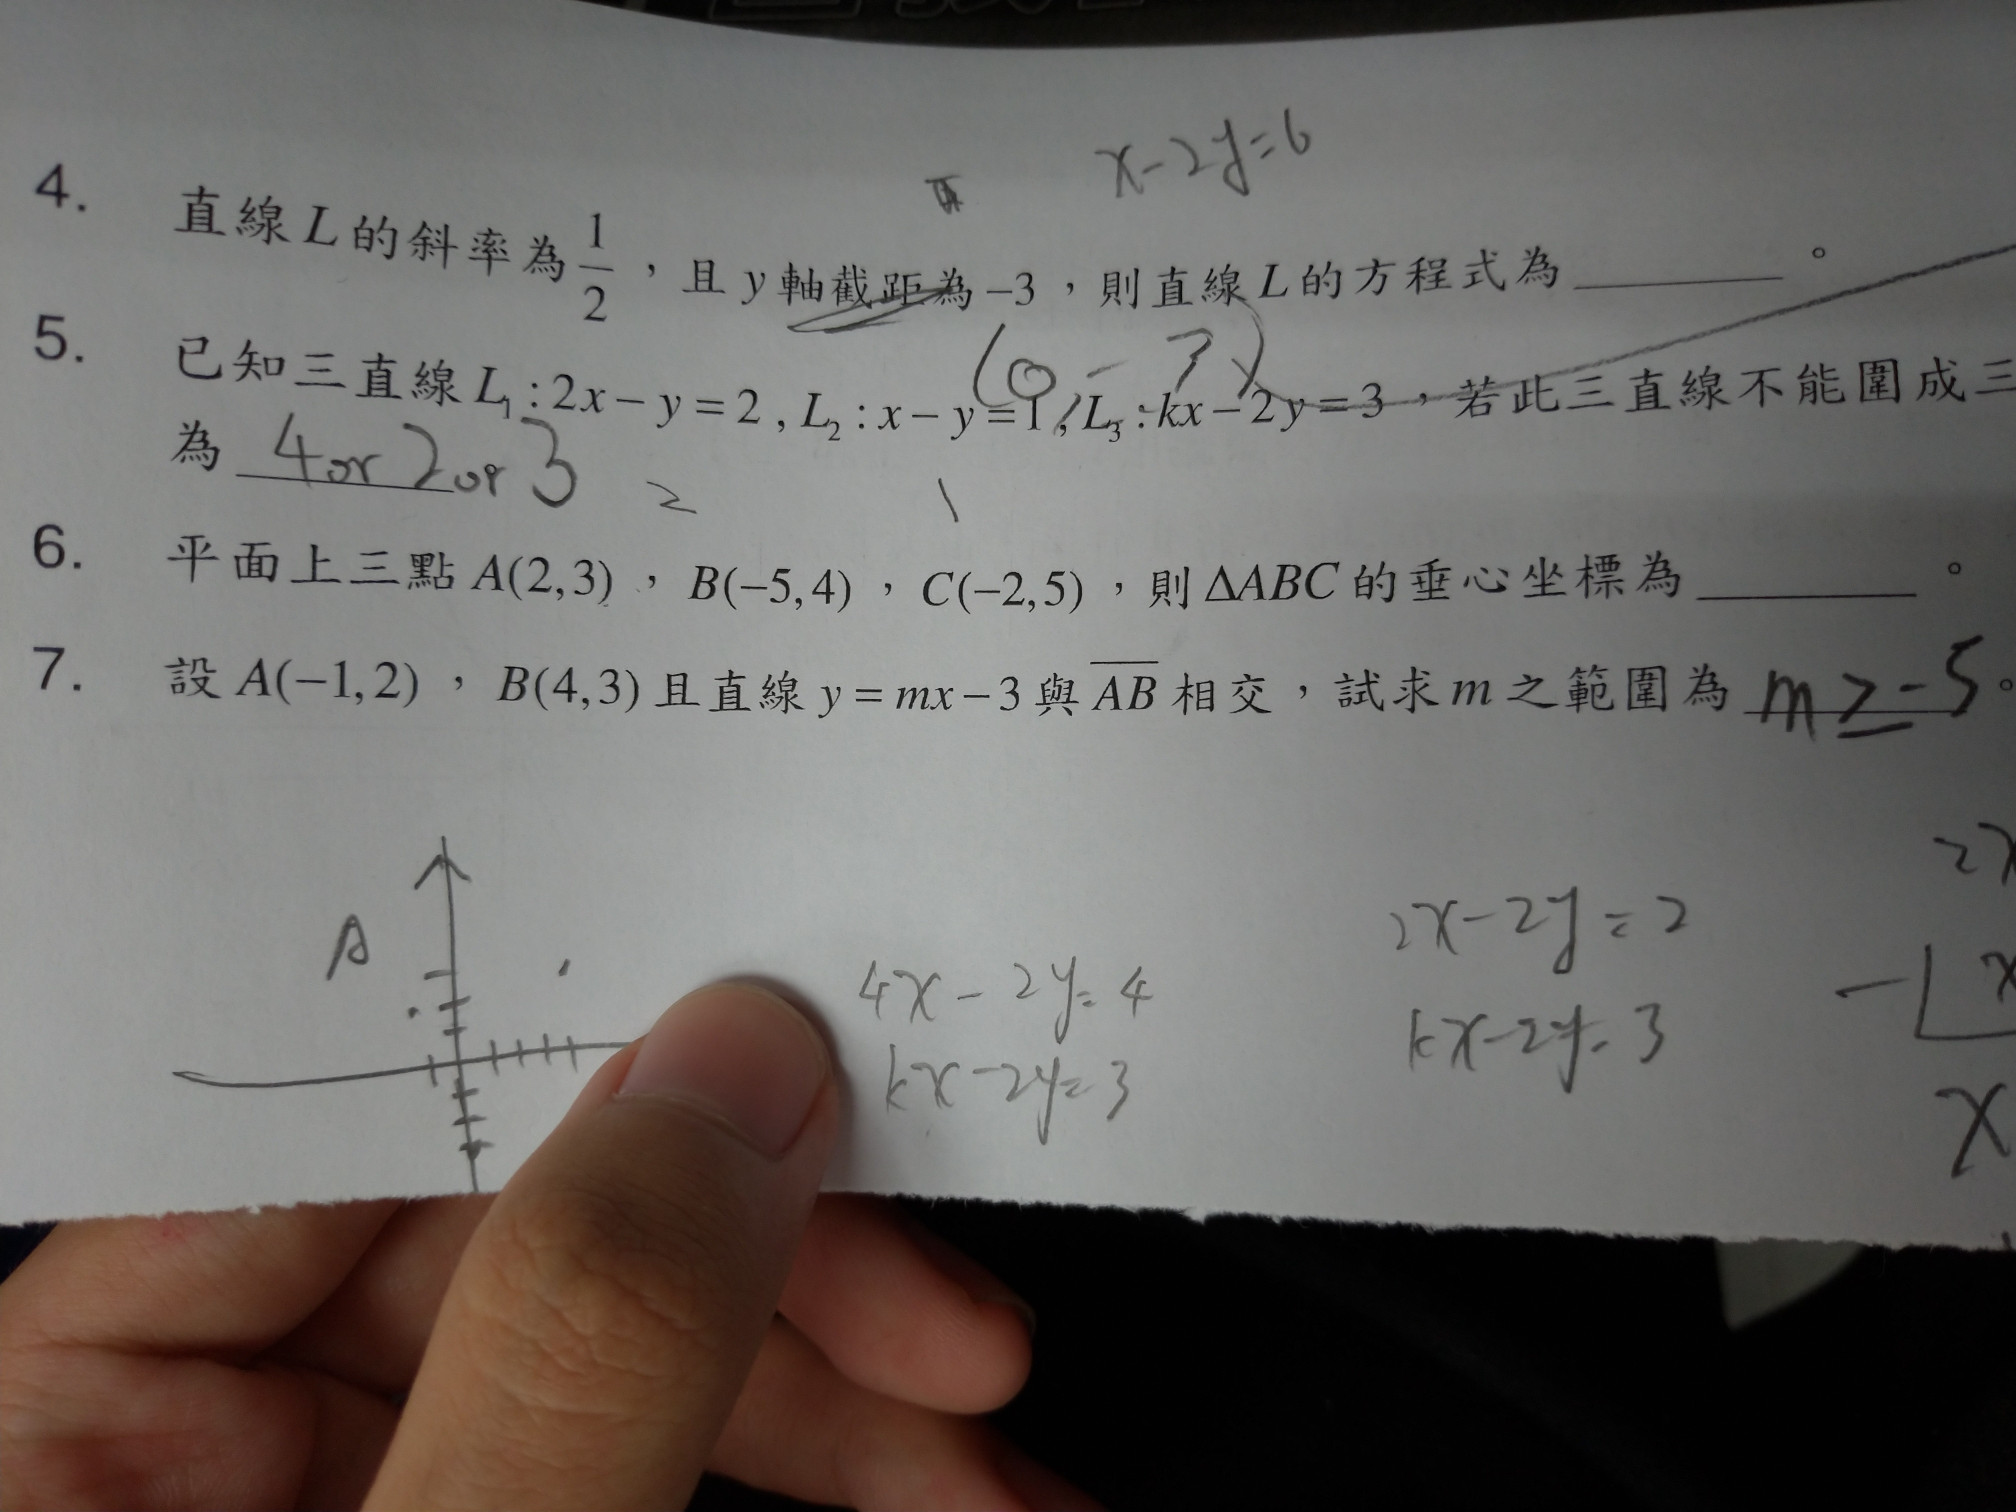 x-2y=6
4. 直線L的斜率為1/2，且y軸截距為-3，則直線L的方程式為________。
(0,-3)
5. 已知三直線L₁:2x-y=2, L₂:x-y=1, L₃:kx-2y=3，若此三直線不能圍成三
為 4or 2or 3
2 1
6. 平面上三點A(2,3)，B(-5,4)，C(-2,5)，則ΔABC的垂心坐標為________。
7. 設A(-1,2)，B(4,3)且直線y=mx-3與AB相交，試求m之範圍為 m≥-5。
A
4x-2y=4
kx-2y=3
2x-2y=2
kx-2y=3
2x
x
x